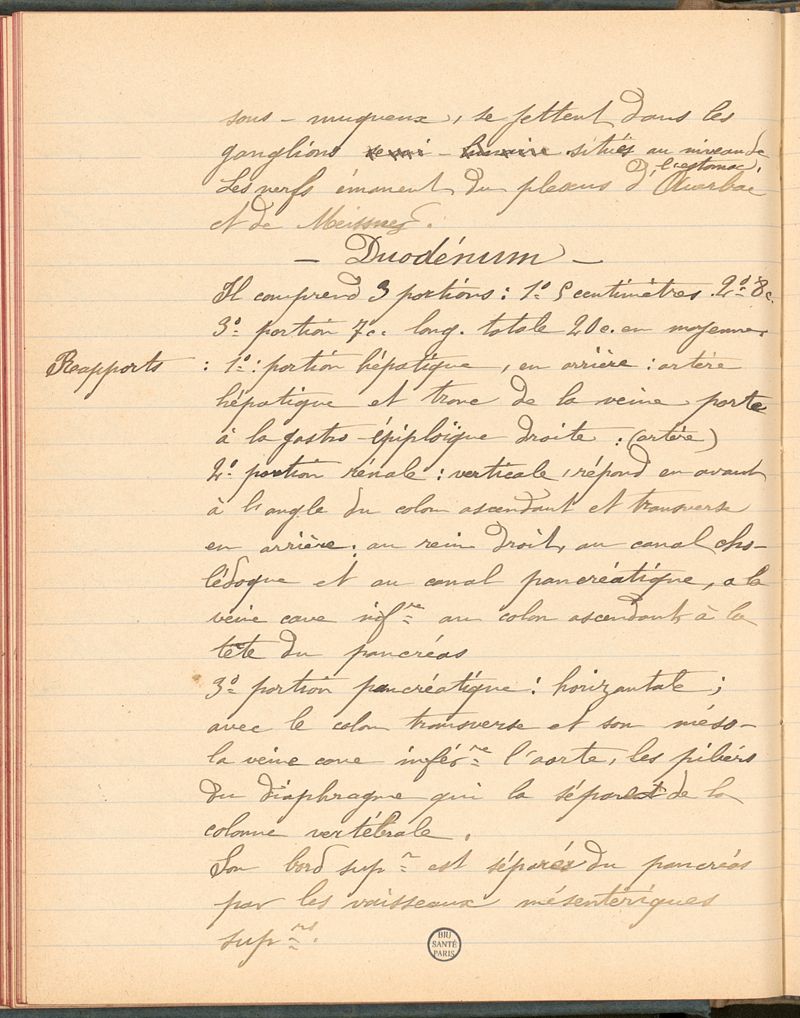 sous-muqueux, se jettent dans les
ganglions semi-lunaire situés au niveau de
l'estomac.
Les nerfs émanent du plexus d'Auerbac
et de Meissner.
— Duodénum —
Il comprend 3 portions : 1º 5 centimètres. 2º 8c.
3º portion 7c. long. totale 20c. en moyenne.
Rapports : 1º : portion hépatique, en arrière : artère
hépatique et tronc de la veine porte
à la gastro-épiploïque droite : (artère)
2º portion rénale : verticale, répond en avant
à l'angle du colon ascendant et transverse
en arrière : au rein droit, au canal cho-
lédoque et au canal pancréatique, a la
veine cave infre au colon ascendant, à la
tête du pancréas
3º portion pancréatique : horizontale ;
avec le colon transverse et son méso-
la veine cave infére l'aorte, les piliers
du diaphragme qui la séparent de la
colonne vertébrale.
Son bord supr est séparé du pancréas
par les vaisseaux mésentériques
suprs.
BIU
SANTÉ
PARIS